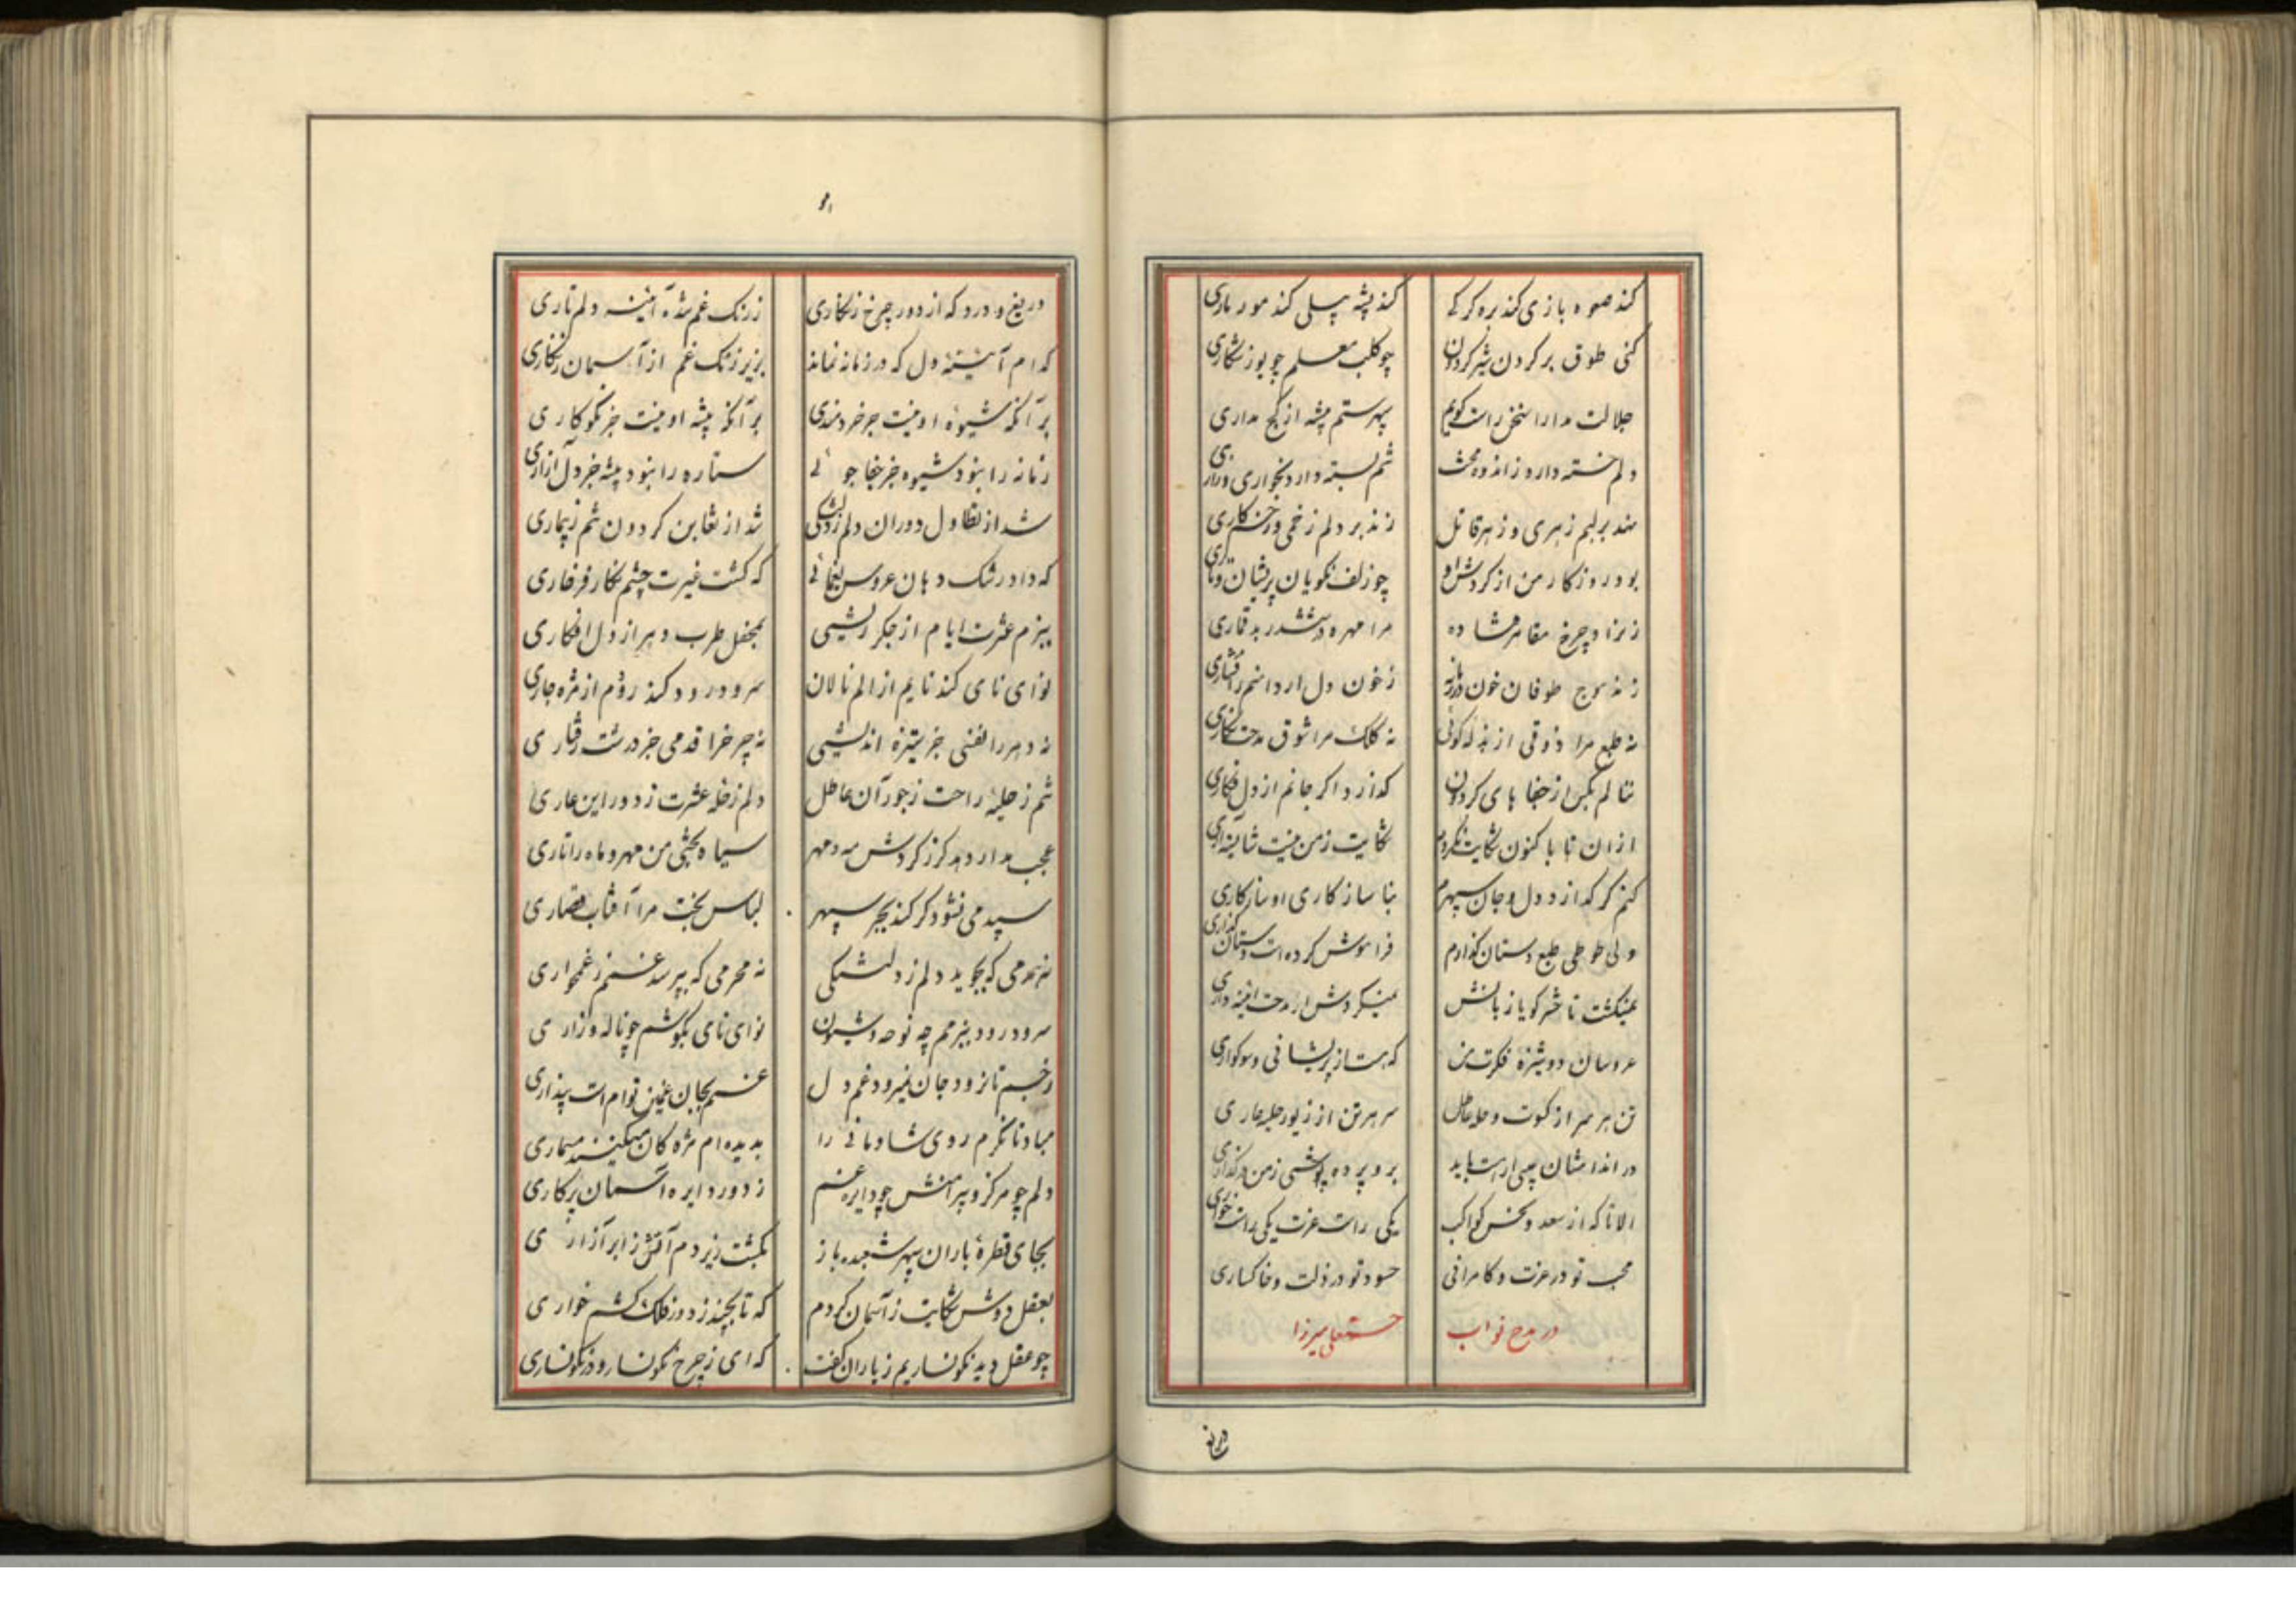 کند صعوه بازی کند بره کرکی کند پشه پیلی کند مور ماری
کنی طوق بر کردن شیر کردون چو کلب معلم چو یوز شکاری
جلالت مدارا سخن راست کویم سپهر ستم پیشه از کج مداری
دلم خسته دارد ز اندوه و محنت تنم بسته دارد بخواری و زاری
نهد بر لبم زهری و زهر قاتل زند بر دلم زخمی و زخم کاری
بود روزکار من از کردش او چو زلف نکویان پریشان و تاری
ز نراد چرخ مقامر فتاده مرا مهره در ششدر بد قماری
زند موج طوفان خون در زمانه ز خون دل ار دامنم را فشاری
نه طبع مرا ذوقی از بذله کوئی نه کلک مرا شوق مدحت نکاری
ننالم بکس از جفا های کردون کدازد اکر جانم از دل فکاری
ازان تا با کنون شکایت نکردم شکایت ز من نیست شایسته آری
کنم کر کدازد دل و جان سپهرم بنا سازکاری او سازکاری
ولی طوطی طبع دستان کذارم فراموش کرده است دستان کذاری
نمیکشت تا حشر کویا زبانش نمیکردش ار مدحت آئینه داری
عروسان دوشیزه فکرت من که هست از پریشانی و سوکواری
تن هر سر از کسوت و حله عاطل سر هر تن از زیور حلیه عاری
در اندامشان عیبی ار هست باید برو پرده پوشی ز من در کذاری
الا تا که از سعد و نحس کواکب یکی راست عزت یکی راست خواری
محب تو در عزت و کامرانی حسود تو در ذلت و خاکساری
در مدح نواب حسنعلی میرزا
دریغ
دریغ و درد که از دور چرخ زنکاری ز زنک غم شده آئینه دلم تاری
کدام آئینهٔ دل که در زمانه نماند بزیر زنک غم از آسمان زنکاری
بر آنکه شیوهٔ او نیست جز خردمندی بر آنکه پیشه او نیست جز نکوکاری
زمانه را نبود شیوه جز جفا جوئی ستاره را نبود پیشه جز دل آزاری
شد از تطاول دوران دلم ز دلتنکی شد از تغابن کردون تنم ز بیماری
که داد رشک دهان عروس یغمائی که کشت غیرت چشم نکار فرخاری
ببزم عشرت ایام از جکر ریشی بمحفل طرب دهر از دل افکاری
نوای نای کند نایم از الم نالان سرود رود کند رودم از مژه جاری
نه دهر را نفسی جز ستیزه اندیشی نه چرخ را قدمی جز درشت رفتاری
تنم ز حلیهٔ راحت ز جور آن عاطل دلم ز حله عشرت ز دور این عاری
عجب مدار دهد کرز کردش مه و مهر سیاه بختی من مهر و ماه را تاری
سپید می نشود کر کند بحر سپهر لباس بخت مرا آفتاب قصاری
نه همدمی که بجوید دلم ز دلتنکی نه محرمی که بپرسد غمم ز غمخواری
سرود رود ببزمم چه نوحه و شیون نوای نای بکوشم چو ناله و زاری
ز جسم تا نرود جان نمیرود غم دل غمم بجان غمین توام است پنداری
مباد تا نکرم روی شادمانی را بدیده ام مژه کان میکنند مسماری
دلم چو مرکز و پیرامنش چو دایره غم ز دور دایره آسمان پرکاری
بجای قطرهٔ باران سپهر شعبده باز بکشت زیر دم آتش ز ابر آزاری
بعقل دوش شکایت ز آسمان کردم که تا بچند ز دور فلک کشم خواری
چو عقل دید نکونساریم ز باران کفت که ای ز چرخ نکونسار و در نکونساری